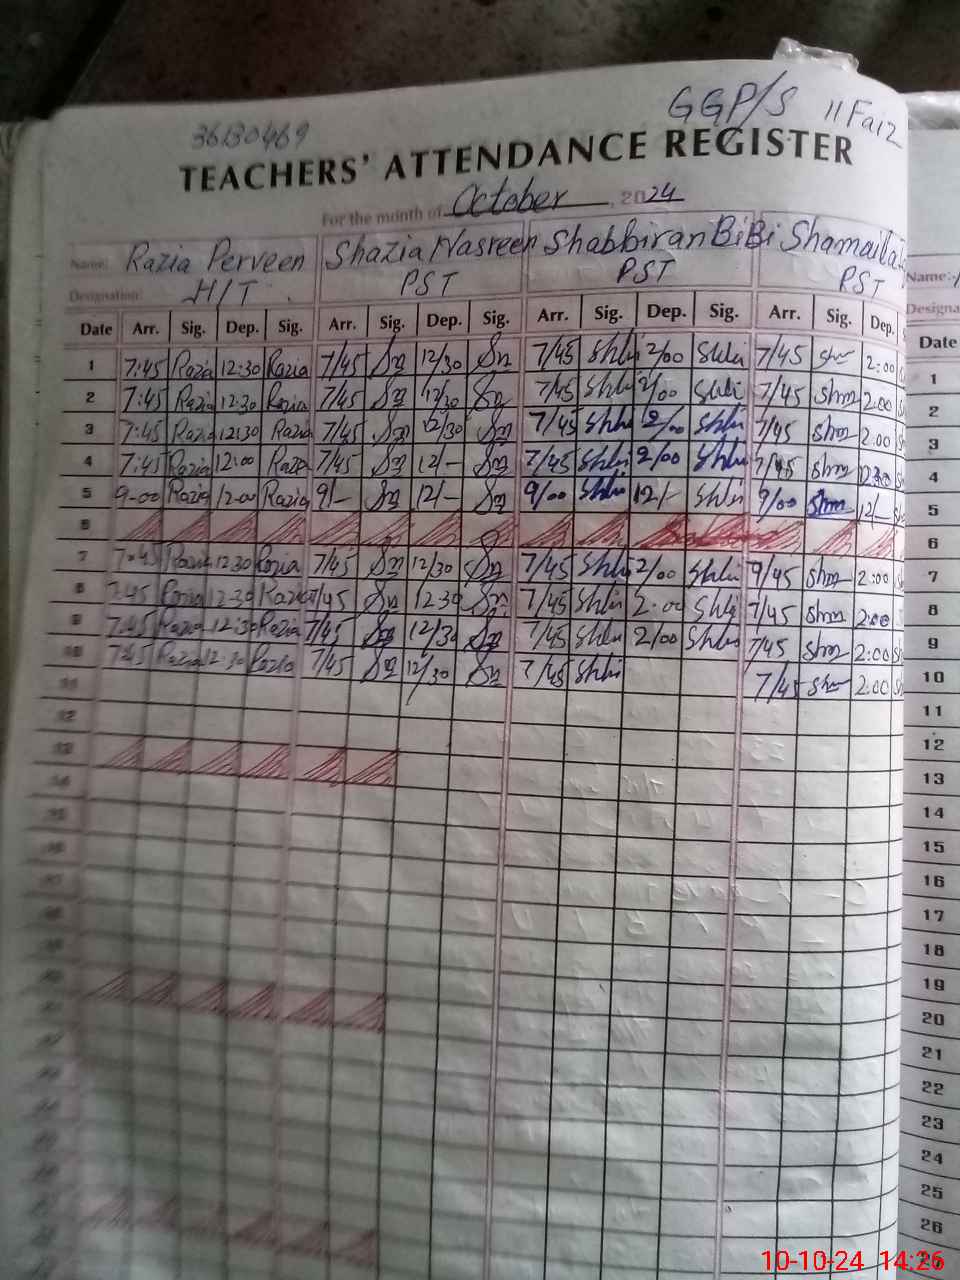 GGP/S 11 Faiz
36130469
TEACHERS' ATTENDANCE REGISTER
For the month of October, 2024
Name: Razia Perveen Shazia Nasreen Shabbiran BiBi Shamaila
Designation: H/T PST PST PST
Date Arr. Sig. Dep. Sig. Arr. Sig. Dep. Sig. Arr. Sig. Dep. Sig. Arr. Sig. Dep.
1 7:45 Razia 12:30 Razia 7/45 Sn 12/30 Sn 7/45 Shbi 2/00 Shbi 7/45 Shm 2:00
2 7:45 Razia 12:30 Razia 7/45 Sn 12/30 Sn 7/45 Shbi 2/00 Shbi 7/45 Shm 2:00
3 7:45 Razia 12:30 Razia 7/45 Sn 12/30 Sn 7/45 Shbi 2/00 Shbi 7/45 Shm 2:00
4 7:45 Razia 12:00 Razia 7/45 Sn 12/- Sn 7/45 Shbi 2/00 Shbi 7/45 Shm
5 9-00 Razia 12-00 Razia 9/- Sn 12/- Sn 9/00 Shbi 12/- Shbi 9/00 Shm 12/-
6
7 7:45 Razia 12:30 Razia 7/45 Sn 12/30 Sn 7/45 Shbi 2/00 Shbi 7/45 Shm 2:00
8 7:45 Razia 12:30 Razia 7/45 Sn 12:30 Sn 7/45 Shbi 2:00 Shbi 7/45 Shm 2:00
9 7:45 Razia 12:30 Razia 7/45 Sn 12/30 Sn 7/45 Shbi 2/00 Shbi 7/45 Shm 2:00
10 7:45 Razia 12:30 Razia 7/45 Sn 12/30 Sn 7/45 Shbi 7/45 Shm 2:00
11
12
13
14
Name:
Designa
Date
1
2
3
4
5
6
7
8
9
10
11
12
13
14
15
16
17
18
19
20
21
22
23
24
25
26
10-10-24 14:26